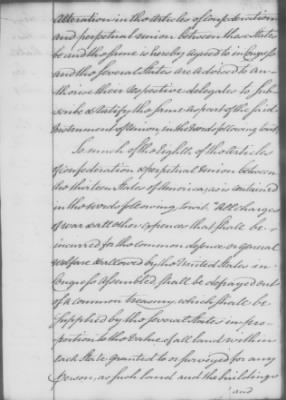 Alteration in the Articles of Confederation
and perpetual union between these States
be and the same is hereby agreed to in Congress
and the several States are advised to au-
thorise their respective delegates to sub-
scribe & ratify the same as part of the said
instrument of union, in the words following, to wit,
So much of the Eighth of the Articles
of Confederation & perpetual Union between
the thirteen States of America, as is contained
in the words following, to wit. "All charges
of war & all other expences that shall be
incurred for the common defence or general
welfare & allowed by the United States in
Congress Assembled shall be defrayed out
of a common treasury, which shall be
supplied by the several States in pro-
portion to the value of all land within
each State granted to or surveyed for any
Person, as such land and the buildings
and